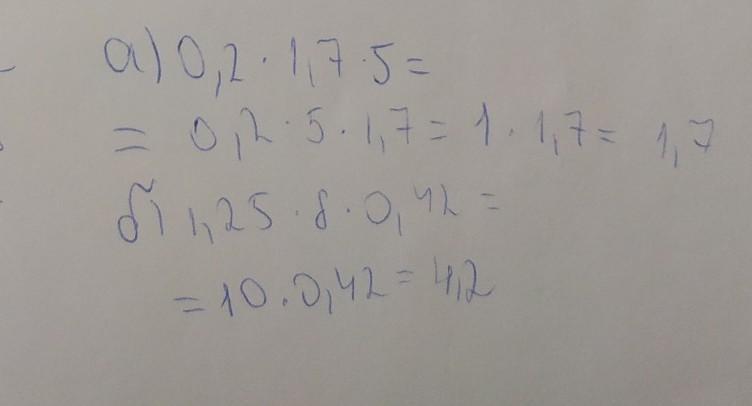 а) 0,2 · 1,7 · 5 =
= 0,2 · 5 · 1,7 = 1 · 1,7 = 1,7
б) 1,25 · 8 · 0,42 =
= 10 · 0,42 = 4,2